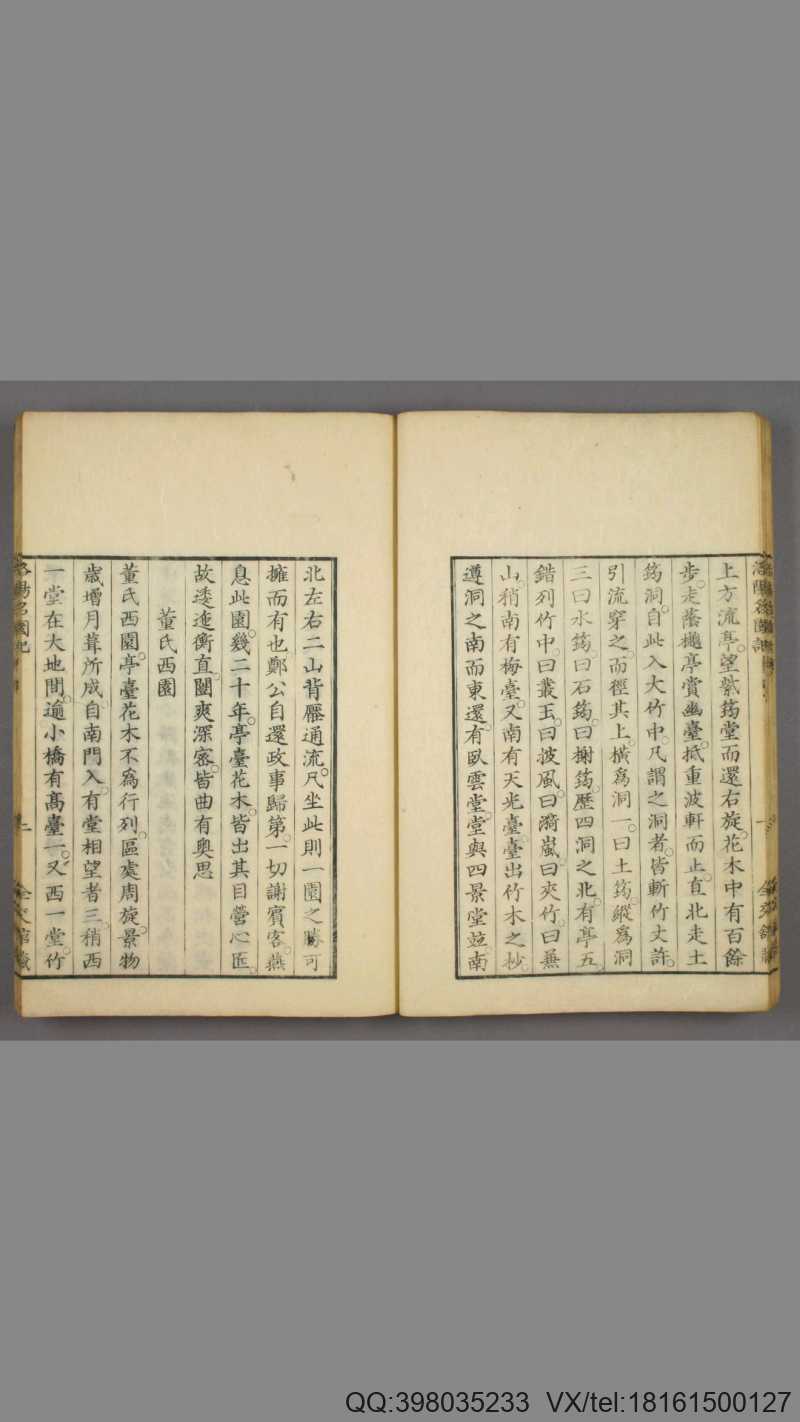 上方流亭。望紫筠堂而還右旋。花木中有百餘
步。走蔭樾亭賞幽臺。抵重波軒而止。直北走土
筠洞。自此入大竹中。凡謂之洞者。皆斬竹丈許。
引流穿之。而徑其上。橫爲洞一。曰土筠。縱爲洞
三曰水筠。曰石筠。曰榭筠。歷四洞之北。有亭五。
錯列竹中。曰叢玉。曰披風。曰漪嵐。曰夾竹。曰兼
山。稍南有梅臺。又南有天光臺。臺出竹木之杪。
遵洞之南而東還。有臥雲堂。堂與四景堂竝南
北左右二山背壓通流。凡坐此則一園之勝可
擁而有也鄭公自還政事歸第。一切謝賓客。燕
息此園。幾二十年。亭臺花木。皆出其目營心匠。
故逶迤衡直。闓爽深密。皆曲有奧思
董氏西園
董氏西園。亭臺花木不爲行列。區處周旋。景物
歲增月葺所成。自南門入。有堂相望者三。稍西
一堂在大地間。逾小橋有髙臺一。又西一堂。竹
洛陽名園記
QQ:398035233 VX/tel:18161500127